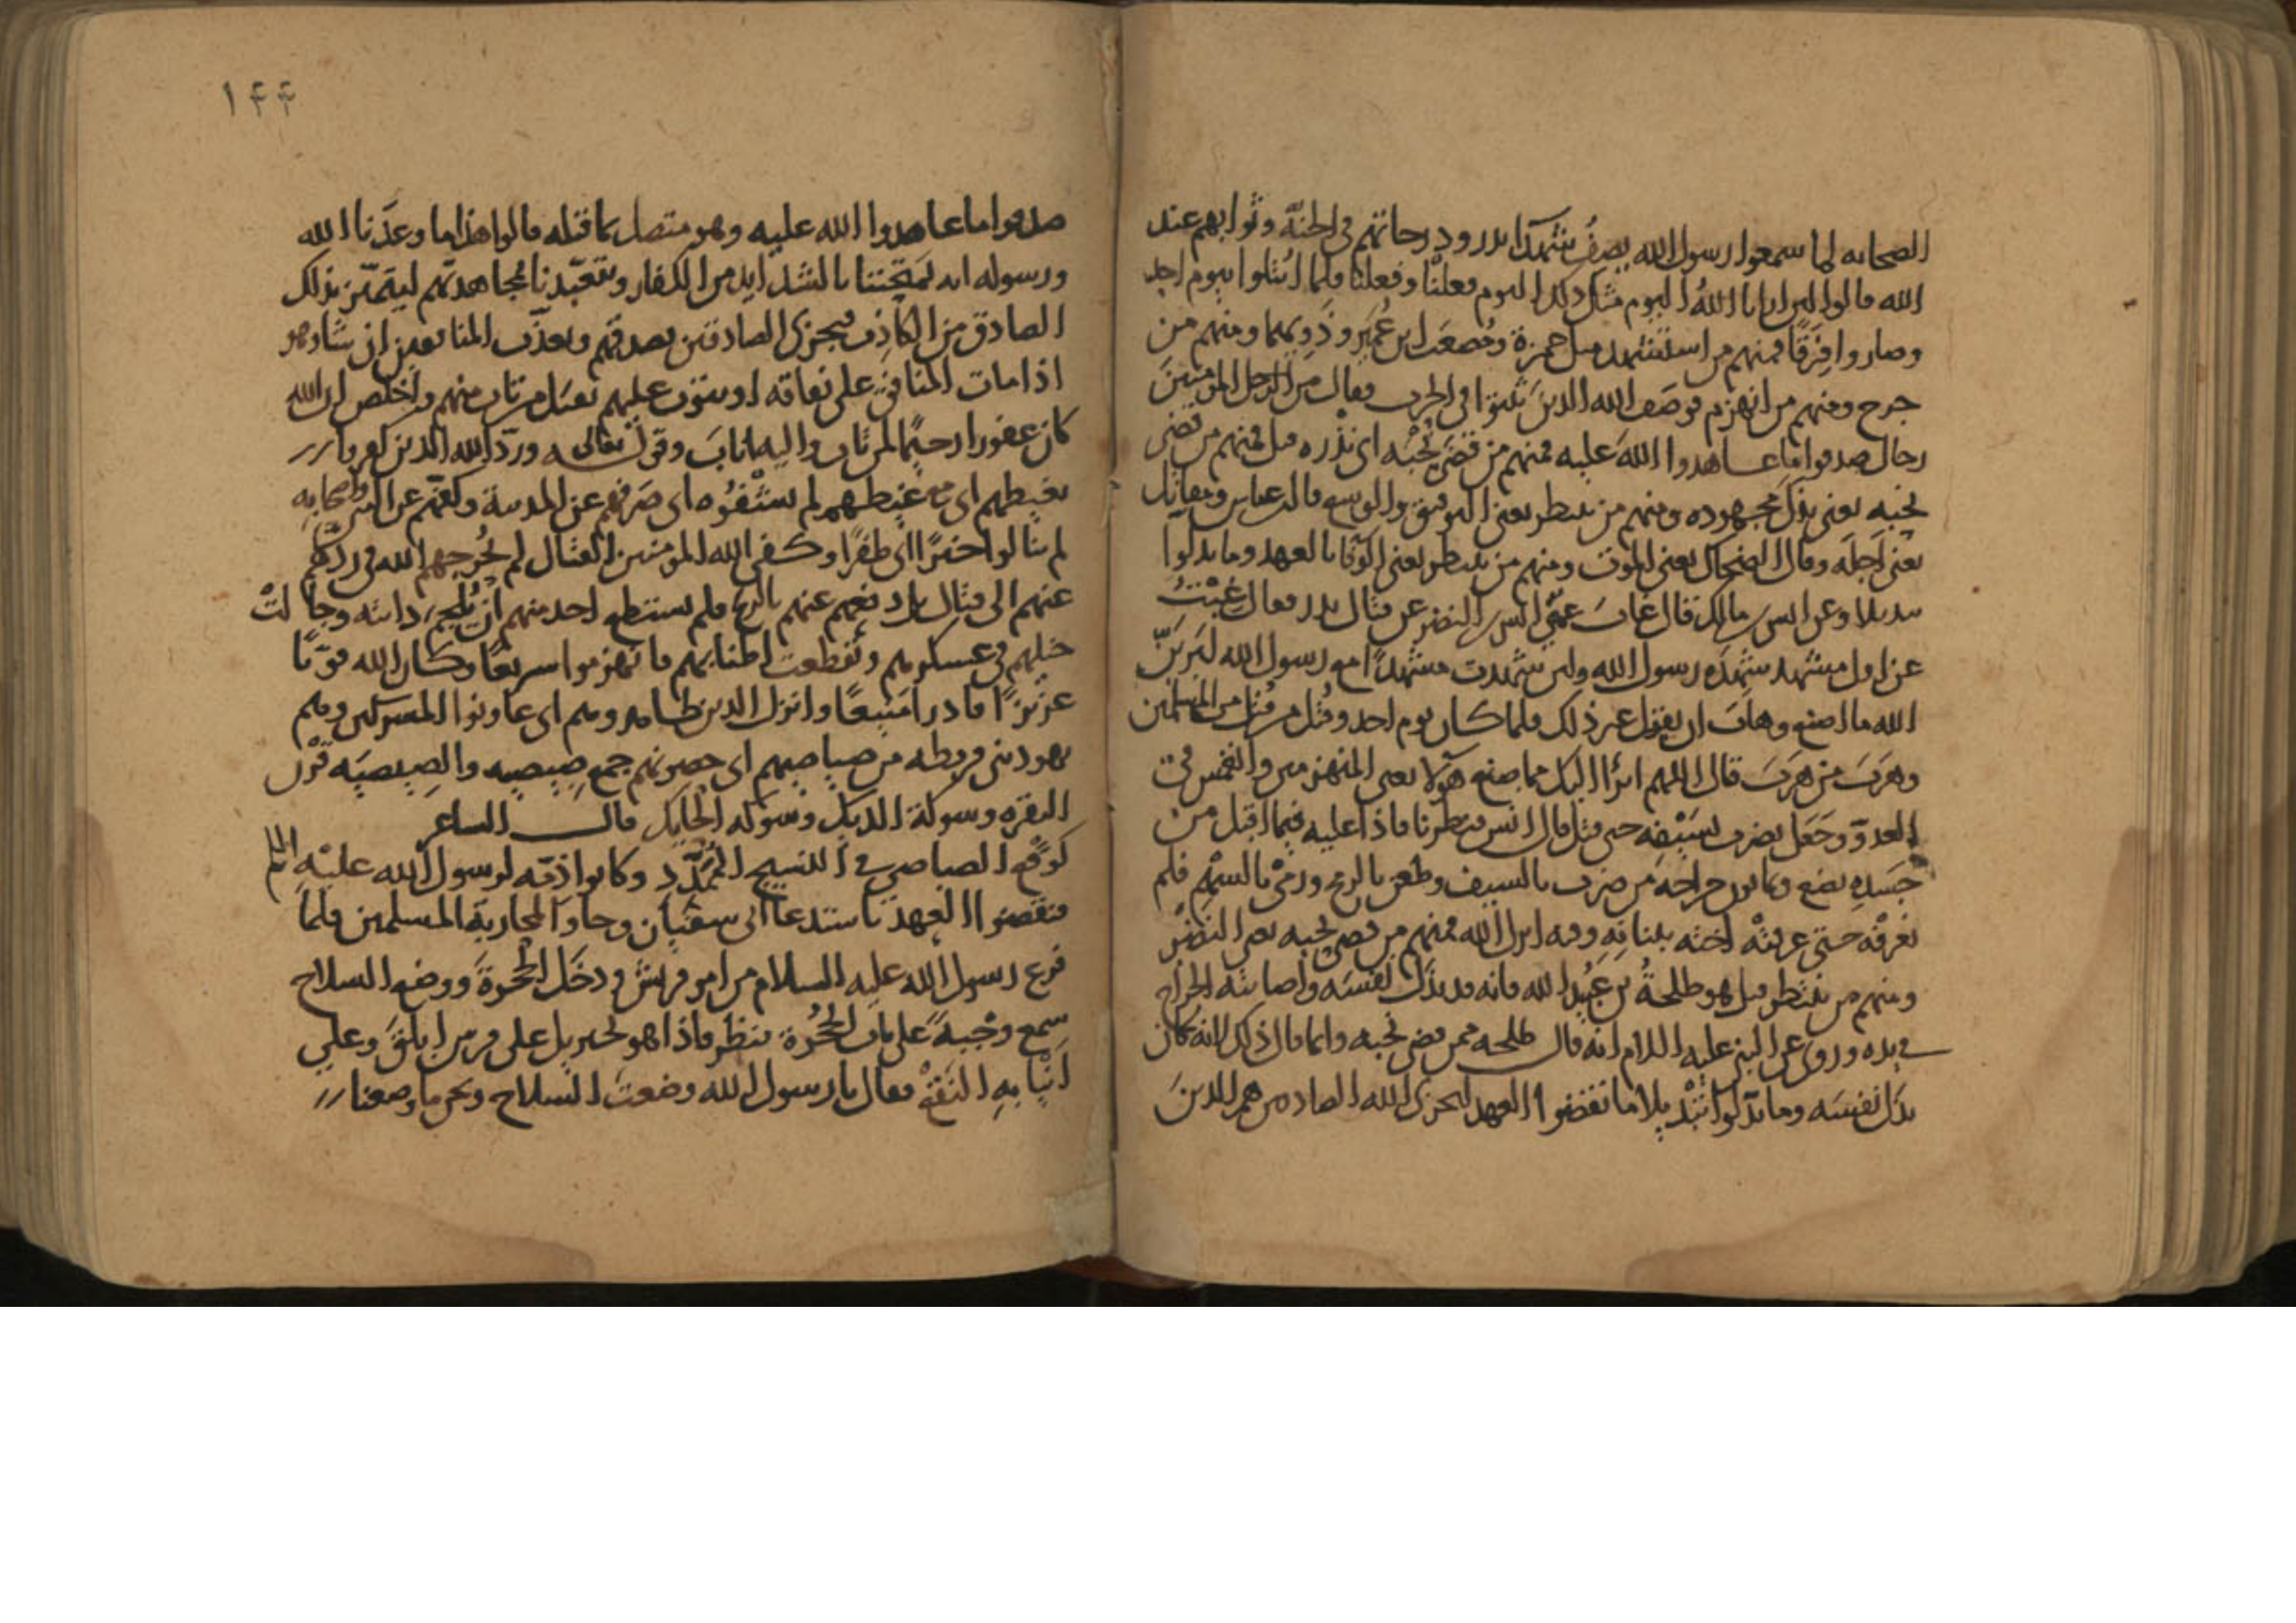 الصحابه لما سمعوا رسول الله يصف شهدا بدر ودرجاتهم في الجنة وثوابهم عند
الله قالوا لين ارانا الله اليوم مثل ذلك اليوم فعلنا وفعلنا فلما ابتلوا بيوم احد
وصاروا فرقا فمنهم من استشهد مثل حمزة ومصعب ابن عمير وذويهما ومنهم من
جرح ومنهم من انهزم فوصف الله الذين ثبتوا في الحرب فقال من المؤمنين
رجال صدقوا ما عاهدوا الله عليه فمنهم من قضى نحبه اي نذره قيل فمنهم من قضى
نحبه يعني بذل مجهوده ومنهم من ينتظر يعني التوفيق والتوبه قال ابن عباس ومقاتل
يعني اجله وقال الضحاك يعني الموت ومنهم من ينتظر يعني الوفا بالعهد وما بدلوا
تبديلا وعن انس بن مالك قال غاب عمي انس بن النضر عن قتال بدر فقال غبت
عن اول مشهد شهده رسول الله ولين شهدت مشهدا مع رسول الله ليرين
الله ما اصنع وهاب ان يقول غير ذلك فلما كان يوم احد وقتل من قتل من المسلمين
وهرب من هرب قال اللهم ابرا اليك مما صنع هولا يعني المنهزمين وانغمس في
العدو وجعل يضرب بسيفه حتى قتل قال انس فنظرنا فاذا عليه فيما اقبل من
جسده بضع وثمانون جراحه من ضرب بالسيف وطعن بالرمح ورمي بالسهم فلم
نعرفه حتى عرفته اخته ببنانه وفيه انزل الله فمنهم من قضى نحبه يعني النضر
ومنهم من ينتظر قيل هو طلحة بن عبيد الله فانه قد بذل نفسه واصابته الجراح
في يده وروي عن النبي عليه السلام انه قال طلحه ممن قضى نحبه وانما قال ذلك لانه كان
بذل نفسه وما بدلوا تبديلا ما نقضوا العهد ليجزي الله الصادقين هم الذين
١٤٤
صدقوا ما عاهدوا الله عليه وهو متصل بما قبله قالوا هذا ما وعدنا الله
ورسوله انه يمتحننا بالشدايد من الكفار ويتعبدنا بمجاهدتهم ليتميز بذلك
الصادق من الكاذب فيجزي الصادقين بصدقهم ويعذب المنافقين ان شا وهو
اذا مات المنافق على نفاقه او يتوب عليهم يقبل من تاب منهم واخلص ان الله
كان غفورا رحيما لمن تاب واليه اناب وقوله تعالى ورد الله الذين كفروا
بغيظهم اي مع غيظهم لم يشفوه اي صرفهم عن المدينة وكفهم عن النبي واصحابه
لم ينالوا خيرا اي ظفرا وكفى الله المومنين القتال لم يحوجهم الله في ردهم
عنهم الى قتال بل دفعهم عنهم بالريح فلم يستطع احد منهم ان يلجم دابته وجالت
خيلهم في عسكرهم وتقطعت اطنابهم فانهزموا سريعا وكان الله قويا
عزيزا قادرا منيعا وانزل الذين ظاهروهم اي عاونوا المشركين وهم
يهود بني قريظه من صياصيهم اي حصونهم جمع صيصيه والصيصيه قرن
البقره وشوكة الديك وشوكه الحايك قال الشاعر
كوقع الصياصي في النسيج الممدد وكانوا ذمه لرسول الله عليه السلم
فنقضوا العهد باستدعا ابي سفيان وجاوا لمحاربة المسلمين فلما
فرغ رسول الله عليه السلام من امر قريش ودخل الحجرة ووضع السلاح
سمع وجبة على باب الحجرة فنظر فاذا هو بجبريل على فرس ابلق وعلى
انيابه النقع فقال يا رسول الله وضعت السلاح ونحن ما وضعنا